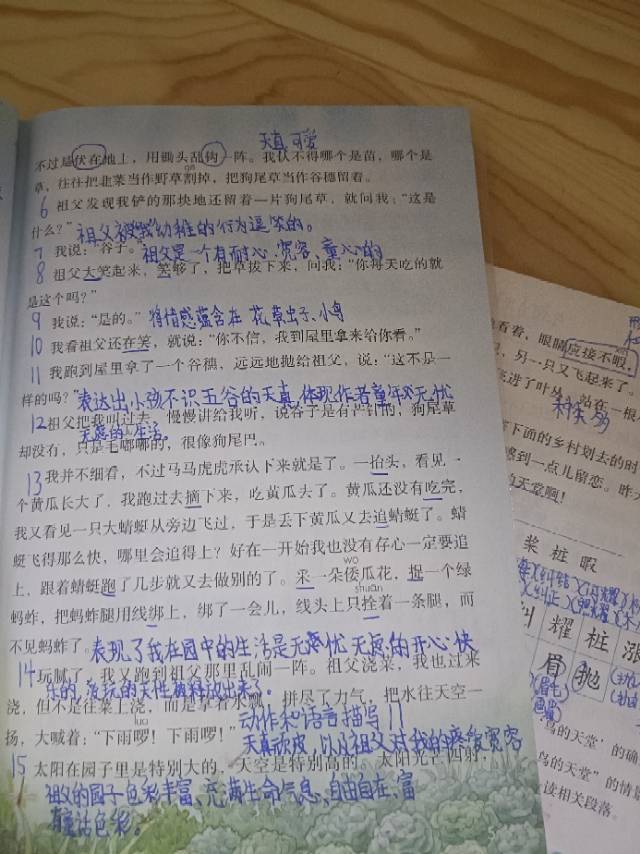 天真可爱
不过是伏在地上，用锄头乱钩一阵。我认不得哪个是苗，哪个是
草，往往把韭菜当作野草割掉，把狗尾草当作谷穗留着。
6 祖父发现我铲的那块地还留着一片狗尾草，就问我："这是
什么？"
祖父被我幼稚的行为逗笑的。
7 我说："谷子。"
祖父是一个有耐心、宽容、童心的
8 祖父大笑起来，笑够了，把草拔下来，问我："你每天吃的就
是这个吗？"
9 我说："是的。"
将情感蕴含在花、草虫子、小鸟
10 我看祖父还在笑，就说："你不信，我到屋里拿来给你看。"
11 我跑到屋里拿了一个谷穗，远远地抛给祖父，说："这不是一
样的吗？"
表达出小孩不识五谷的天真，体现作者童年无忧
12 祖父把我叫过去，慢慢讲给我听，说谷子是有芒针的，狗尾草
无虑的生活。
却没有，只是毛嘟嘟的，很像狗尾巴。
13 我并不细看，不过马马虎虎承认下来就是了。一抬头，看见一
个黄瓜长大了，我跑过去摘下来，吃黄瓜去了。黄瓜还没有吃完，
我又看见一只大蜻蜓从旁边飞过，于是丢下黄瓜又去追蜻蜓了。蜻
蜓飞得那么快，哪里会追得上？好在一开始我也没有存心一定要追
wō
上，跟着蜻蜓跑了几步就又去做别的了。采一朵倭瓜花，捉一个绿
shuān
蚂蚱，把蚂蚱腿用线绑上，绑了一会儿，线头上只拴着一条腿，而
不见蚂蚱了。
表现了我在园中的生活是无忧无虑的开心、快
14 玩腻了，我又跑到祖父那里乱闹一阵。祖父浇菜，我也过来
乐的，
浇，但不是往菜上浇，而是拿着水瓢，拼尽了力气，把水往天空一
luo
扬，大喊着："下雨啰！下雨啰！"
动作和语言描写
天真顽皮，以及祖父对我的疼爱宽容
15 太阳在园子里是特别大的，天空是特别高的。太阳光芒四射，
祖父的园子色彩丰富、充满生命气息、自由自在、富
有童话色彩。
看着，眼睛应接不暇。
，另一只又飞起来了。
飞进了叶丛，站在一根
种类多
下面的乡村划去的时
感到一点儿留恋。昨
的天堂啊！
桨 桩 暇
耀 桩
眉 抛
鸟的天堂'的确
鸟的天堂"的情
读相关段落。